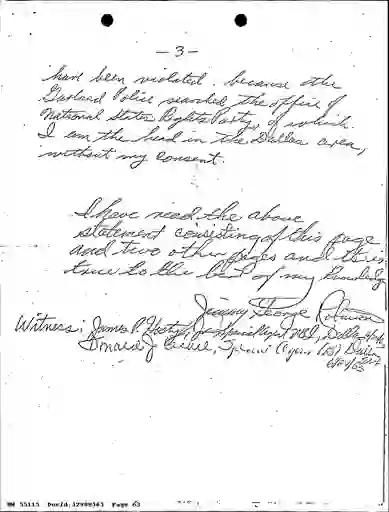 - 3 -
have been violated because the
Garland Police searched the office of
National States Rights Party, of which
I am the head in the Dallas area,
without my consent.
I have read the above
statement consisting of this page
and two other pages and it is
true to the best of my knowledge
Jimmy George Robinson
Witness: James P. Hosty, Jr. Special Agent FBI, Dallas
Donald J. Special Agent, FBI Dallas
HW 55115 DocId:32989365 Page 63